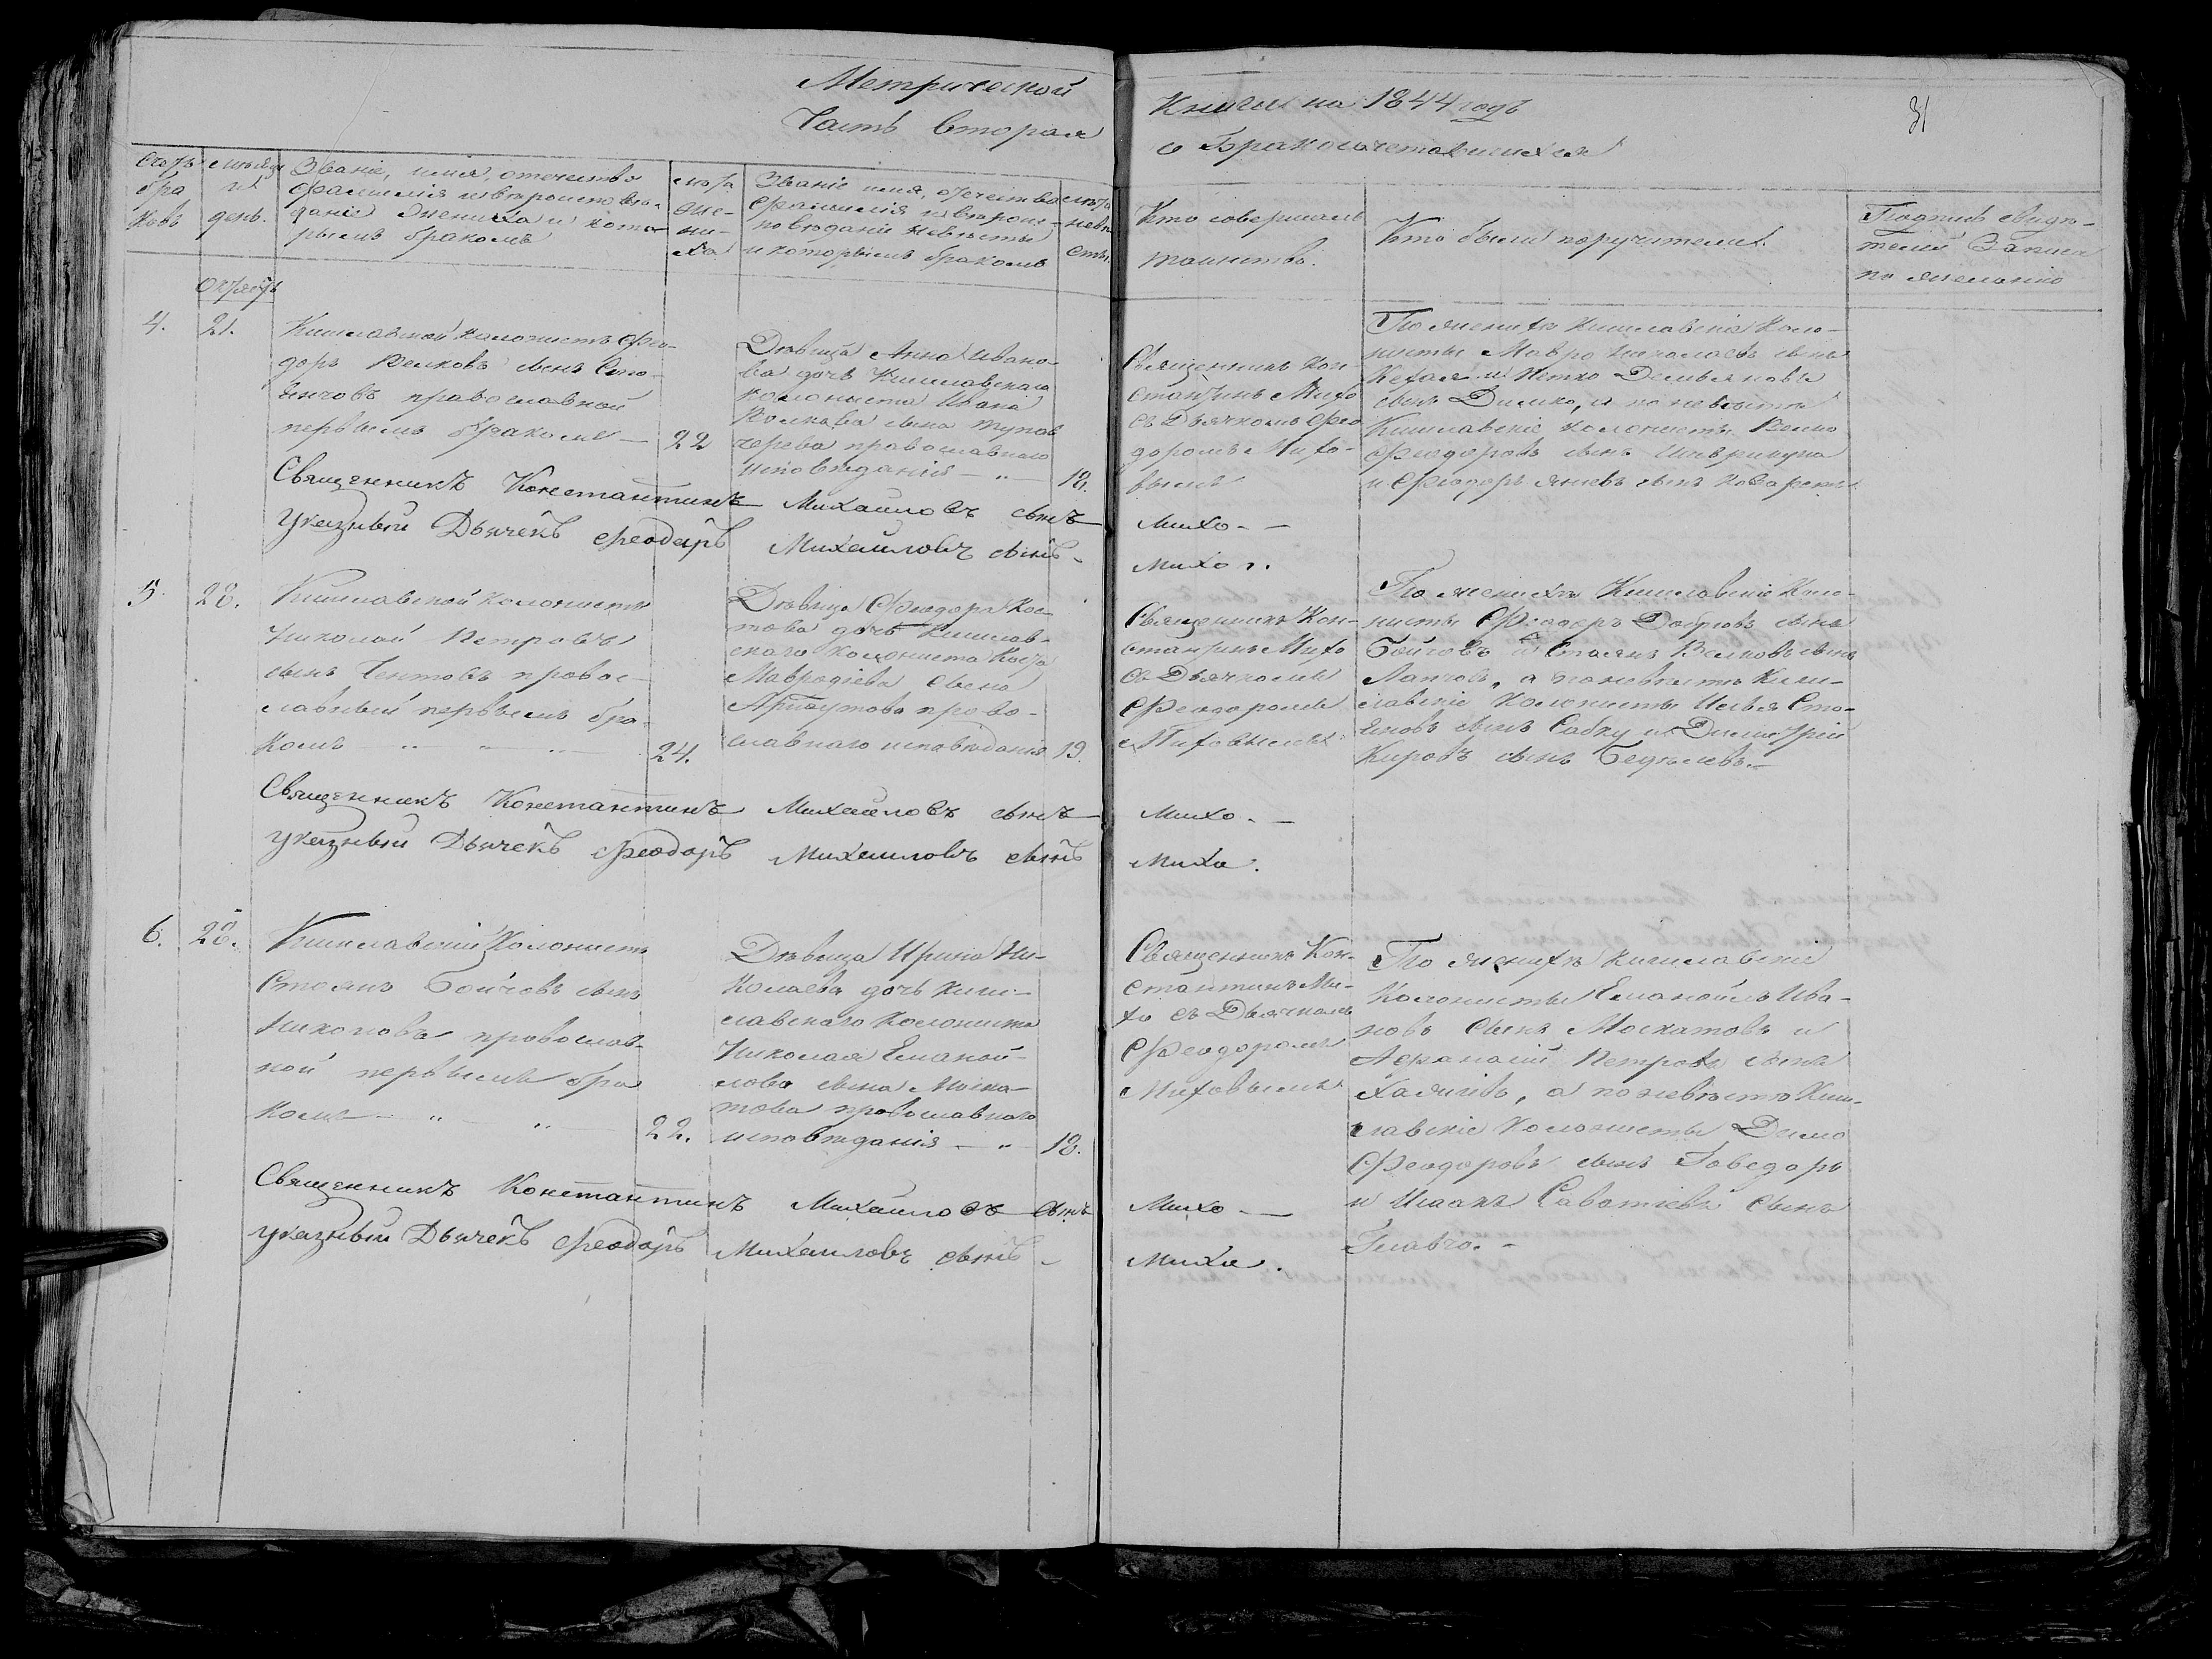 Метрической
Часть вторая
Книги на 1844 годъ
о Бракосочетавшихся
31
Счетъ бра ковъ
мѣсяцъ и день.
Званіе, имя, отечество
фамилія и вѣроисповѣ-
даніе Жениха и кото-
рымъ бракомъ
лѣта же- ни- ха
Званіе имя, отечество
фамилія и вѣроис-
повѣданіе невѣсты
и которымъ бракомъ
лѣта невѣ сты.
Кто совершалъ
таинство.
Кто были поручители.
Подпись свидѣ-
телей Записи
по желанію
Октябрь
4.
21.
Кишлавской колонистъ Фео-
доръ Велковъ сынъ Сто-
янчовъ православной
первымъ бракомъ —
22
Дѣвица Анна Ивано-
ва дочь Кишлавскаго
колониста Ивана
Волкова сына
православнаго
исповѣданія — „ —
18.
Священникъ Кон-
стантинъ Михо
съ Дьячкомъ Фео
доромъ Михо-
вымъ
По женихѣ Кишлавскіе Коло-
нисты Мавро Николаевъ сынъ
Кехая и Петко Демьяновъ
сынъ Димко, а по невѣсте
Кишлавскіе колонисты Велко
Феодоровъ сынъ
и Феодоръ Яневъ сынъ
Священникъ Константинъ Михаиловъ сынъ
Михо. —
указный Дьячекъ Феодоръ Михаиловъ сынъ -
Михо.
5.
28.
Кишлавской колонистъ
Николай Петровъ
сынъ Чентовъ провос-
лавный первымъ бра-
комъ „ — „ —
24.
Дѣвица Феодора Кос-
това дочь Кишлав-
скаго колониста Коста
Мавродіева сына
право-
славнаго исповѣданія
19.
Священникъ Кон-
стантинъ Михо
съ Дьячкомъ
Феодоромъ
Миховымъ
По женихѣ Кишлавскіе Коло-
нисты Феодоръ Добровъ сынъ
Бойчовъ и Стоянъ Велковъ сынъ
Лапчовъ, а по невѣсте Киш-
лавскіе Колонисты Илья Сто-
яновъ сынъ Сабку и Димитрій
Кировъ сынъ
Священникъ Константинъ Михаиловъ сынъ
Михо. —
указный Дьячекъ Феодоръ Михаиловъ сынъ
Михо.
6.
28.
Кишлавскій Колонистъ
Стоянъ Бойчевъ сынъ
Николовъ провослав-
ной первымъ бра
комъ — „ — „ —
22.
Дѣвица Ирина Ни-
колаева дочь Киш-
лавскаго Колониста
Николая Еманой-
лова сына Моска-
това провославнаго
исповѣданія — „ —
18.
Священникъ Кон-
стантинъ Ми-
хо съ Дьячкомъ
Феодоромъ
Миховымъ
По женихѣ Кишлавскіе
Колонисты Еманойлъ Ива-
новъ сынъ Москатовъ и
Афанасій Петровъ сынъ
Хаджіевъ, а по невѣсте Киш-
лавскіе Колонисты Димо
Феодоровъ сынъ Говедаръ
и Саватіевъ сынъ
Главчо. -
Священникъ Константинъ Михаиловъ сынъ
Михо. —
указный Дьячекъ Феодоръ Михаиловъ сынъ -
Михо.